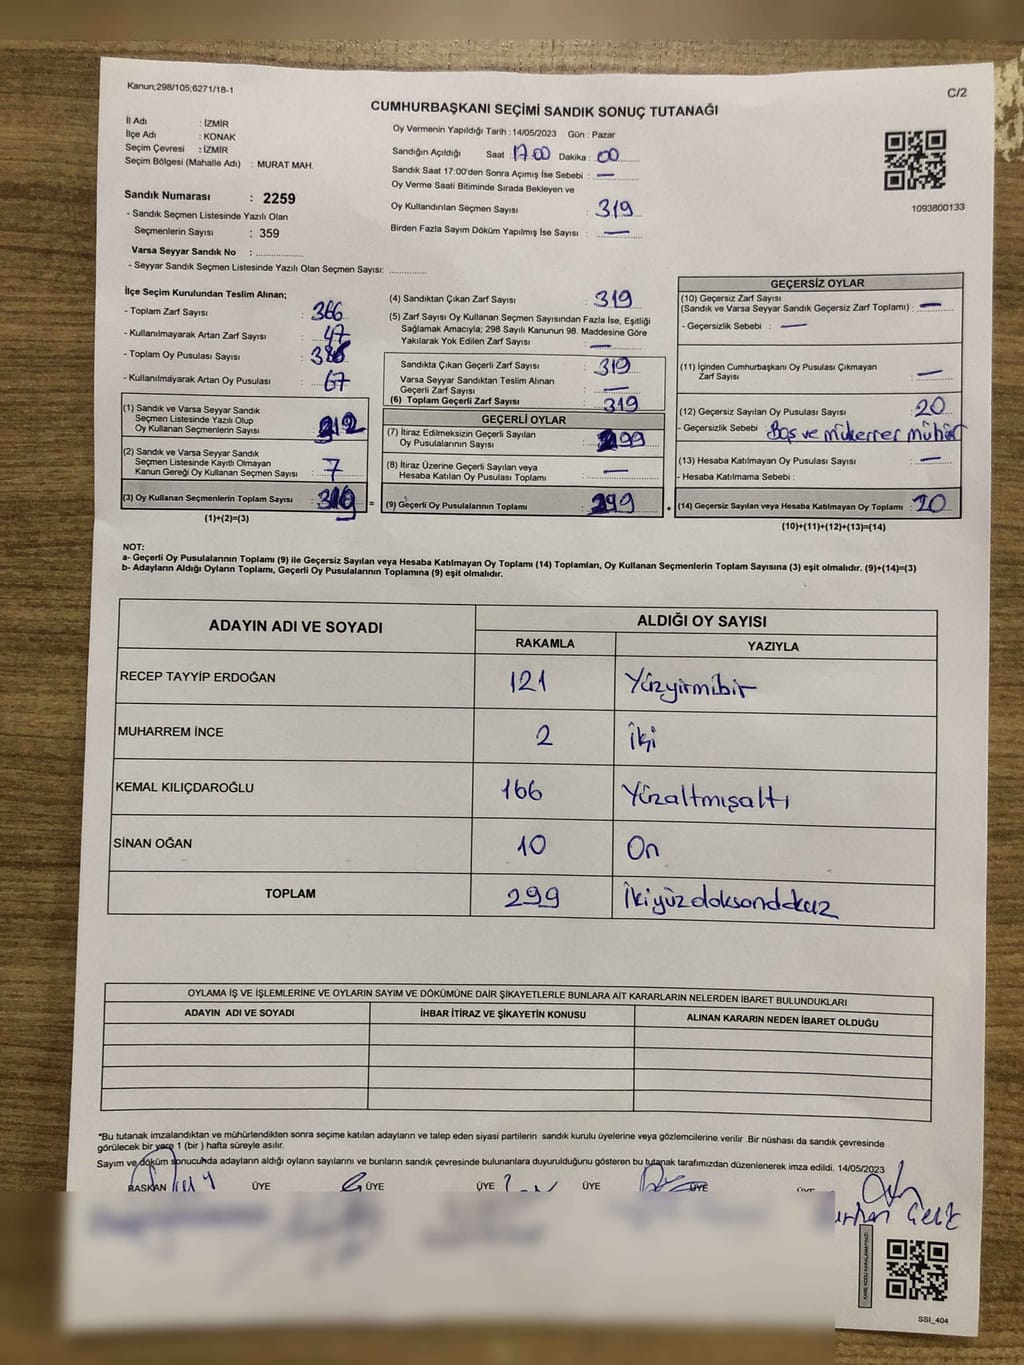 Kanun;298/105,6271/18-1
C/2
CUMHURBAŞKANI SEÇİMİ SANDIK SONUÇ TUTANAĞI
İl Adı : İZMİR
İlçe Adı : KONAK
Seçim Çevresi : İZMİR
Seçim Bölgesi (Mahalle Adı) : MURAT MAH.
Sandık Numarası : 2259
- Sandık Seçmen Listesinde Yazılı Olan
Seçmenlerin Sayısı : 359
Varsa Seyyar Sandık No : ..............
- Seyyar Sandık Seçmen Listesinde Yazılı Olan Seçmen Sayısı: ............
Oy Vermenin Yapıldığı Tarih : 14/05/2023 Gün : Pazar
Sandığın Açıldığı Saat : 17.00 Dakika : 00
Sandık Saat 17:00'den Sonra Açımış İse Sebebi : —
Oy Verme Saati Bitiminde Sırada Bekleyen ve
Oy Kullandırılan Seçmen Sayısı : 319
Birden Fazla Sayım Döküm Yapılmış İse Sayısı : —
1093800133
İlçe Seçim Kurulundan Teslim Alınan;
- Toplam Zarf Sayısı : 366
- Kullanılmayarak Artan Zarf Sayısı : 47
- Toplam Oy Pusulası Sayısı :
- Kullanılmayarak Artan Oy Pusulası : 67
(1) Sandık ve Varsa Seyyar Sandık
Seçmen Listesinde Yazılı Olup
Oy Kullanan Seçmenlerin Sayısı :
(2) Sandık ve Varsa Seyyar Sandık
Seçmen Listesinde Kayıtlı Olmayan
Kanun Gereği Oy Kullanan Seçmen Sayısı : 7
(3) Oy Kullanan Seçmenlerin Toplam Sayısı : =
(1)+(2)=(3)
(4) Sandıktan Çıkan Zarf Sayısı : 319
(5) Zarf Sayısı Oy Kullanan Seçmen Sayısından Fazla İse, Eşitliği
Sağlamak Amacıyla; 298 Sayılı Kanunun 98. Maddesine Göre
Yakılarak Yok Edilen Zarf Sayısı : —
Sandıkta Çıkan Geçerli Zarf Sayısı : 319
Varsa Seyyar Sandıktan Teslim Alınan
Geçerli Zarf Sayısı : —
(6) Toplam Geçerli Zarf Sayısı : 319
GEÇERLİ OYLAR
(7) İtiraz Edilmeksizin Geçerli Sayılan
Oy Pusulalarının Sayısı : 299
(8) İtiraz Üzerine Geçerli Sayılan veya
Hesaba Katılan Oy Pusulası Toplamı : —
(9) Geçerli Oy Pusulalarının Toplamı : 299 +
GEÇERSİZ OYLAR
(10) Geçersiz Zarf Sayısı
(Sandık ve Varsa Seyyar Sandık Geçersiz Zarf Toplamı) : —
- Geçersizlik Sebebi : —
(11) İçinden Cumhurbaşkanı Oy Pusulası Çıkmayan
Zarf Sayısı : —
(12) Geçersiz Sayılan Oy Pusulası Sayısı : 20
- Geçersizlik Sebebi : Boş ve mükerrer mühür
(13) Hesaba Katılmayan Oy Pusulası Sayısı : —
- Hesaba Katılmama Sebebi :
(14) Geçersiz Sayılan veya Hesaba Katılmayan Oy Toplamı : 20
(10)+(11)+(12)+(13)=(14)
NOT:
a- Geçerli Oy Pusulalarının Toplamı (9) ile Geçersiz Sayılan veya Hesaba Katılmayan Oy Toplamı (14) Toplamları, Oy Kullanan Seçmenlerin Toplam Sayısına (3) eşit olmalıdır. (9)+(14)=(3)
b- Adayların Aldığı Oyların Toplamı, Geçerli Oy Pusulalarının Toplamına (9) eşit olmalıdır.
ADAYIN ADI VE SOYADI
ALDIĞI OY SAYISI
RAKAMLA YAZIYLA
RECEP TAYYİP ERDOĞAN 121 Yüzyirmibir
MUHARREM İNCE 2 İki
KEMAL KILIÇDAROĞLU 166 Yüzaltmışaltı
SİNAN OĞAN 10 On
TOPLAM 299 İkiyüzdoksandokuz
OYLAMA İŞ VE İŞLEMLERİNE VE OYLARIN SAYIM VE DÖKÜMÜNE DAİR ŞİKAYETLERLE BUNLARA AİT KARARLARIN NELERDEN İBARET BULUNDUKLARI
ADAYIN ADI VE SOYADI İHBAR İTİRAZ VE ŞİKAYETİN KONUSU ALINAN KARARIN NEDEN İBARET OLDUĞU
*Bu tutanak imzalandıktan ve mühürlendikten sonra seçime katılan adayların ve talep eden siyasi partilerin sandık kurulu üyelerine veya gözlemcilerine verilir .Bir nüshası da sandık çevresinde
görülecek bir yere 1 (bir ) hafta süreyle asılır.
Sayım ve döküm sonucunda adayların aldığı oyların sayılarını ve bunların sandık çevresinde bulunanlara duyurulduğunu gösteren bu tutanak tarafımızdan düzenlenerek imza edildi. 14/05/2023
BAŞKAN ÜYE ÜYE ÜYE ÜYE ÜYE
KARE KODU KARALAMAYINIZ!
SSI_404